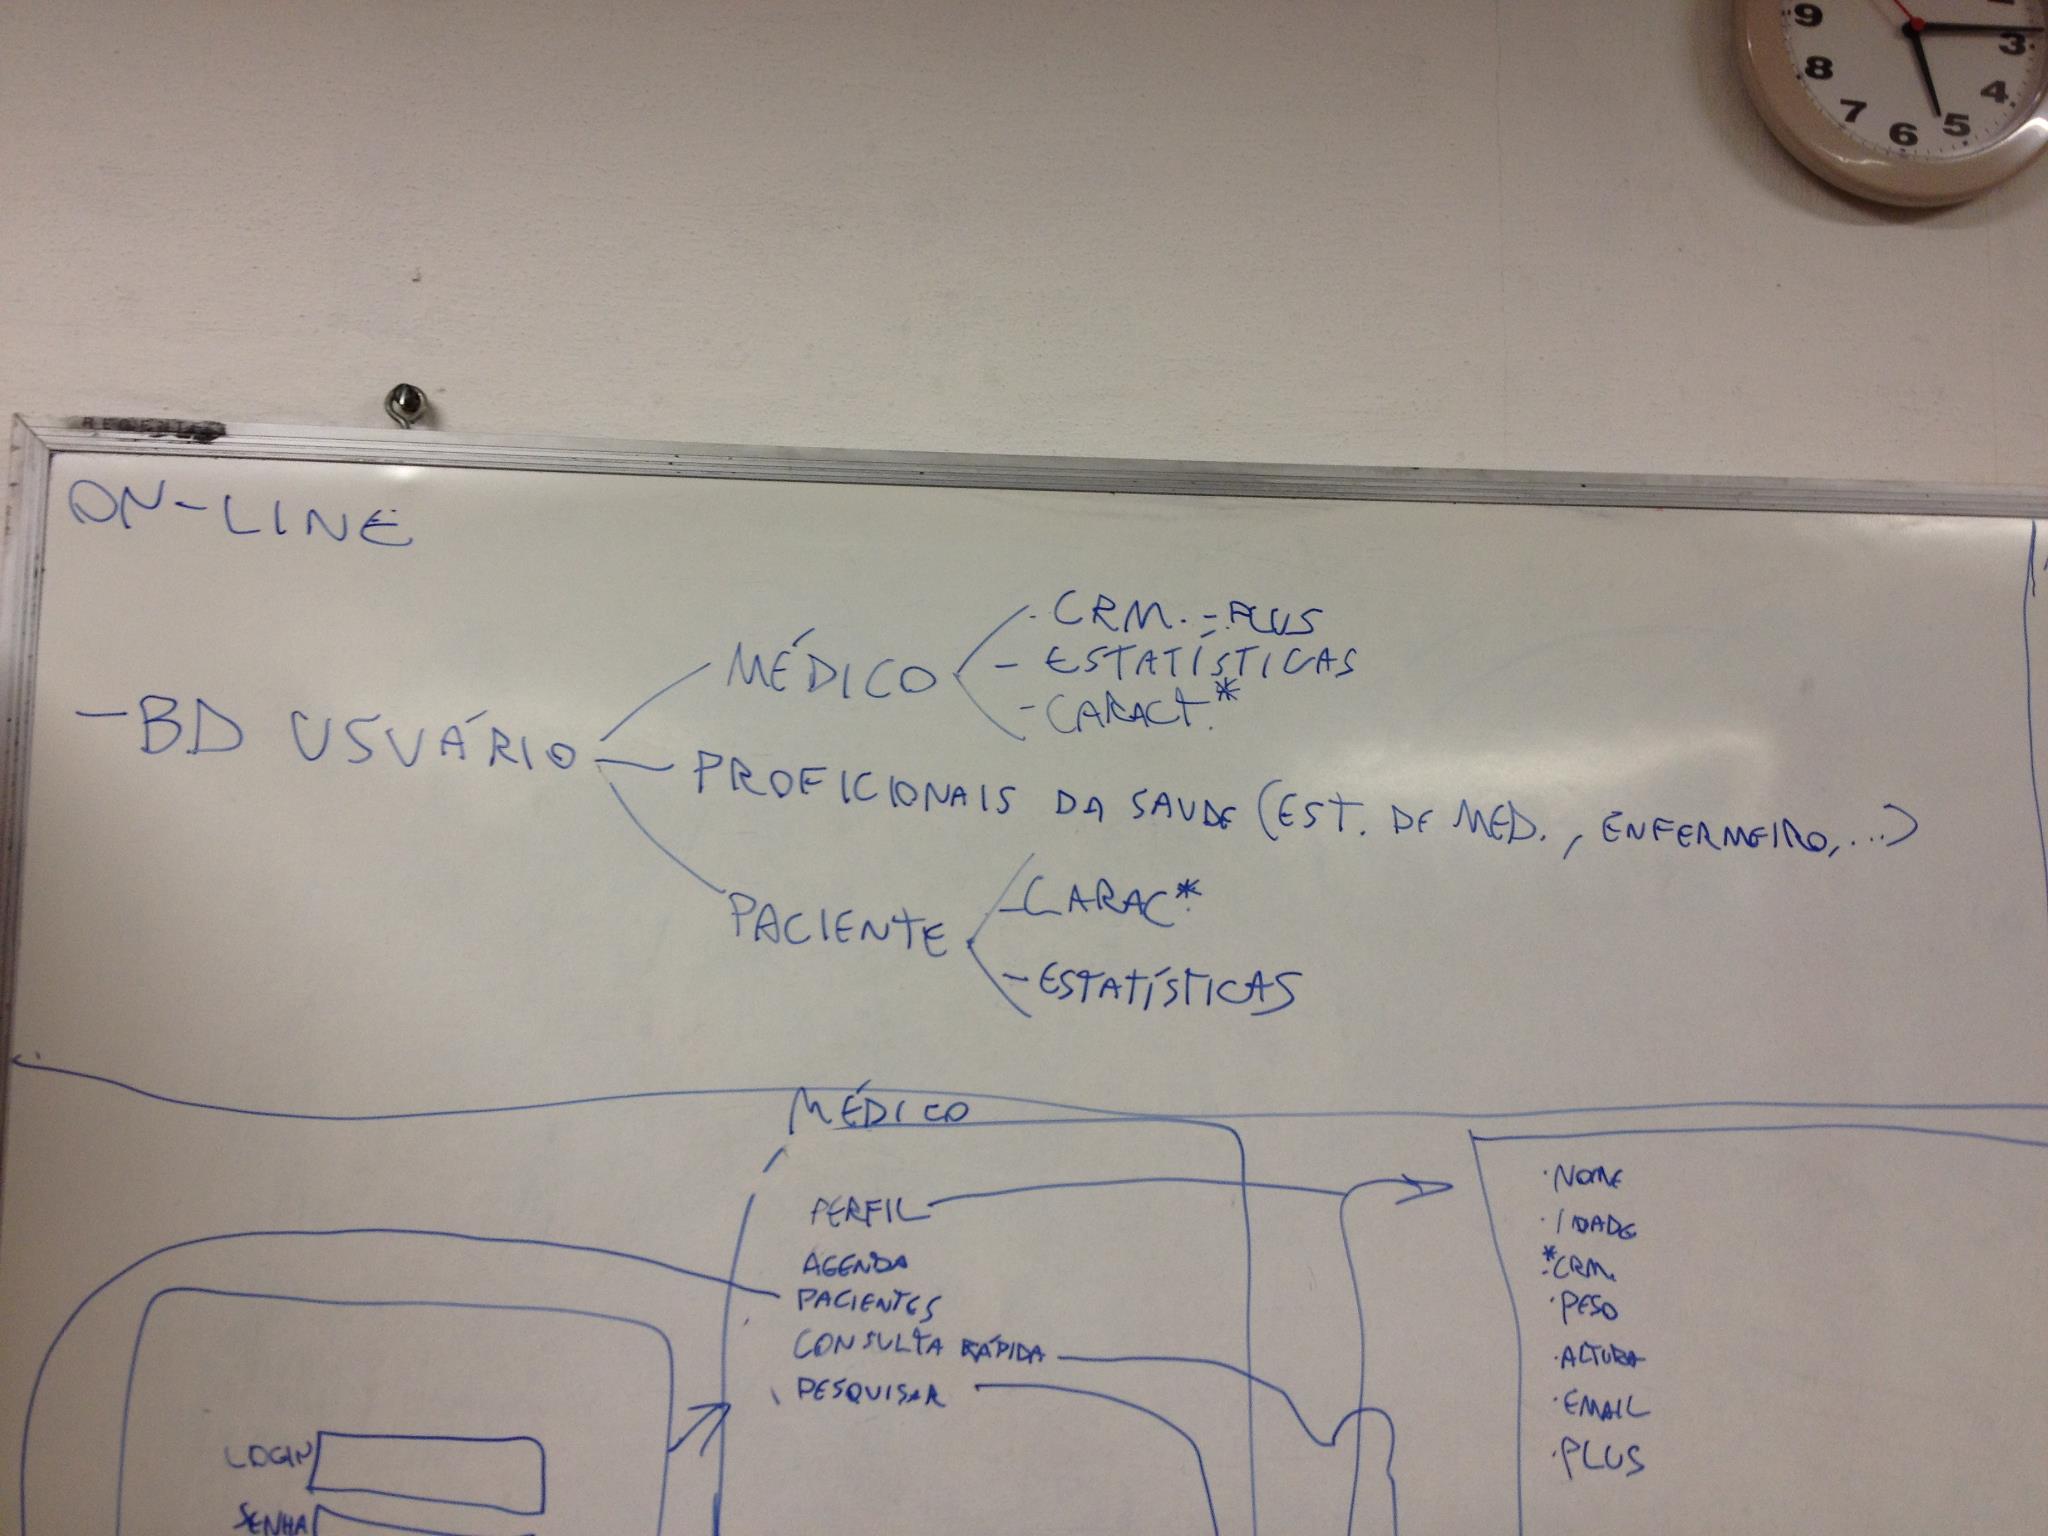 9
3
8
4
7
6
5
ON-LINE
- BD USUÁRIO
MÉDICO
· CRM. - PLUS
- ESTATÍSTICAS
- CARACT.*
PROFICIONAIS DA SAUDE (EST. DE MED., ENFERMEIRO,...)
PACIENTE
- CARAC*.
- ESTATÍSTICAS
MÉDICO
PERFIL
AGENDA
PACIENTES
CONSULTA RÁPIDA
PESQUISAR
LOGIN
SENHA
· NOME
· IDADE
*· CRM.
· PESO
· ALTURA
· EMAIL
· PLUS